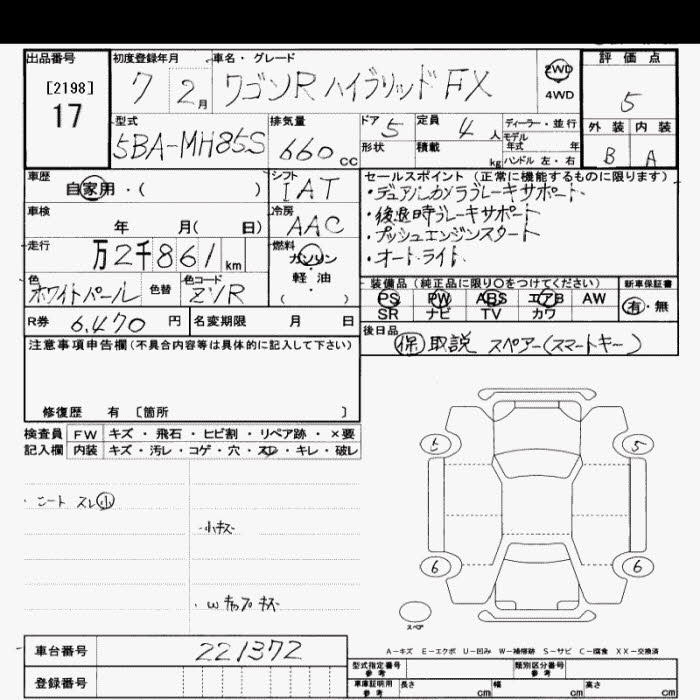 出品番号 初度登録年月 車名・グレード 評価点
[2198] 7 2月 ワゴンR ハイブリッド FX 2WD 5
17 4WD
型式 排気量 ドア 定員 ディーラー・並行 外装 内装
5BA-MH85S 660cc 5 4人 モデル年式 年 B A
形状 積載 kg ハンドル 左・右
車歴 シフト セールスポイント (正常に機能するものに限ります)
自家用・( ) IAT ・デュアルカメラブレーキサポート
車検 冷房 ・後退時ブレーキサポート
年 月( 日) AAC ・プッシュエンジンスタート
走行 燃料 ・オートライト
万2千861km ガソリン・軽油・( )
装備品 (純正品に限り○をつけてください) 新車保証書
色 色替 色コード PS PW ABS エアB AW 有・無
ホワイトパール ZVR SR ナビ TV カワ
R券 6,470円 名変期限 月 日 後日品
保 取説 スペアー(スマートキー)
注意事項申告欄(不具合内容等は具体的に記入して下さい)
修復歴 有 〔箇所 〕
検査員 FW キズ・飛石・ヒビ割・リペア跡・×要
記入欄 内装 キズ・汚レ・コゲ・穴・スレ・キレ・破レ
5
・ニート スレ小
・小キズ
6 6
・W キャップ キズ
スペア
車台番号 221372
A-キズ E-エクボ U-凹み W-補修跡 S-サビ C-腐食 XX-交換済
登録番号
型式指定番号 参考 類別区分番号 参考
車庫証明用 参考 長さ cm 幅 cm 高さ cm